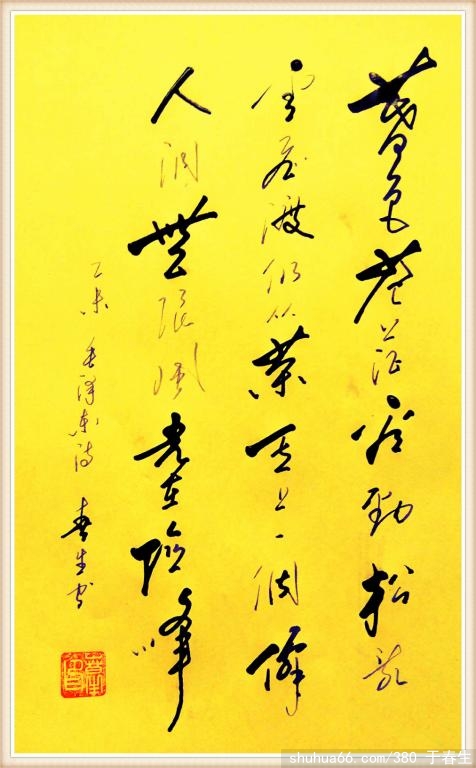 暮色苍茫看劲松乱
雲飞渡仍从容天生一個僊
人洞無限风光在险峰
乙未 毛泽东诗 春生书
shuhua66.com/380 于春生